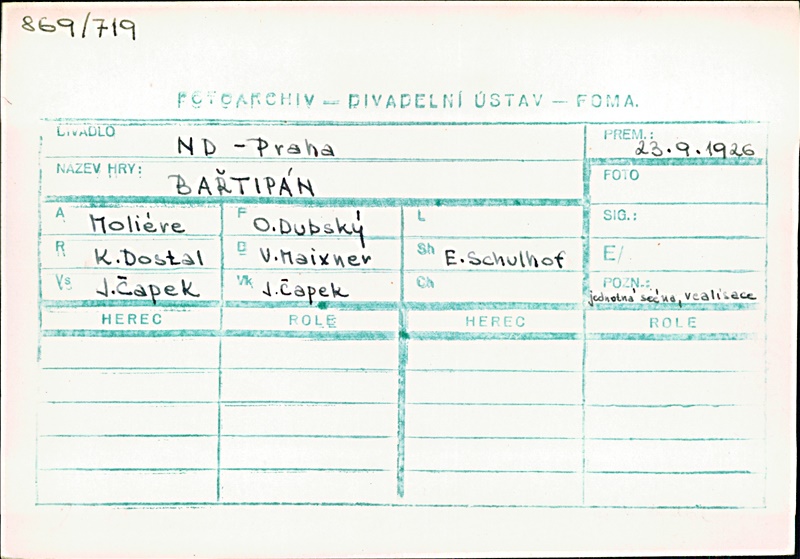 869/719
FOTOARCHIV — DIVADELNÍ ÚSTAV — FOMA.
DIVADLO ND - Praha
PREM.: 23.9.1926
NÁZEV HRY: BAŘTIPÁN
FOTO
A Moliére
P O.Dubský
L
SIG.:
R K.Dostal
D V.Maixner
Sh E.Schulhof
E/
Vs J.Čapek
Vk J.Čapek
Ch
POZN.: jednotná scéna, realisace
HEREC ROLE HEREC ROLE